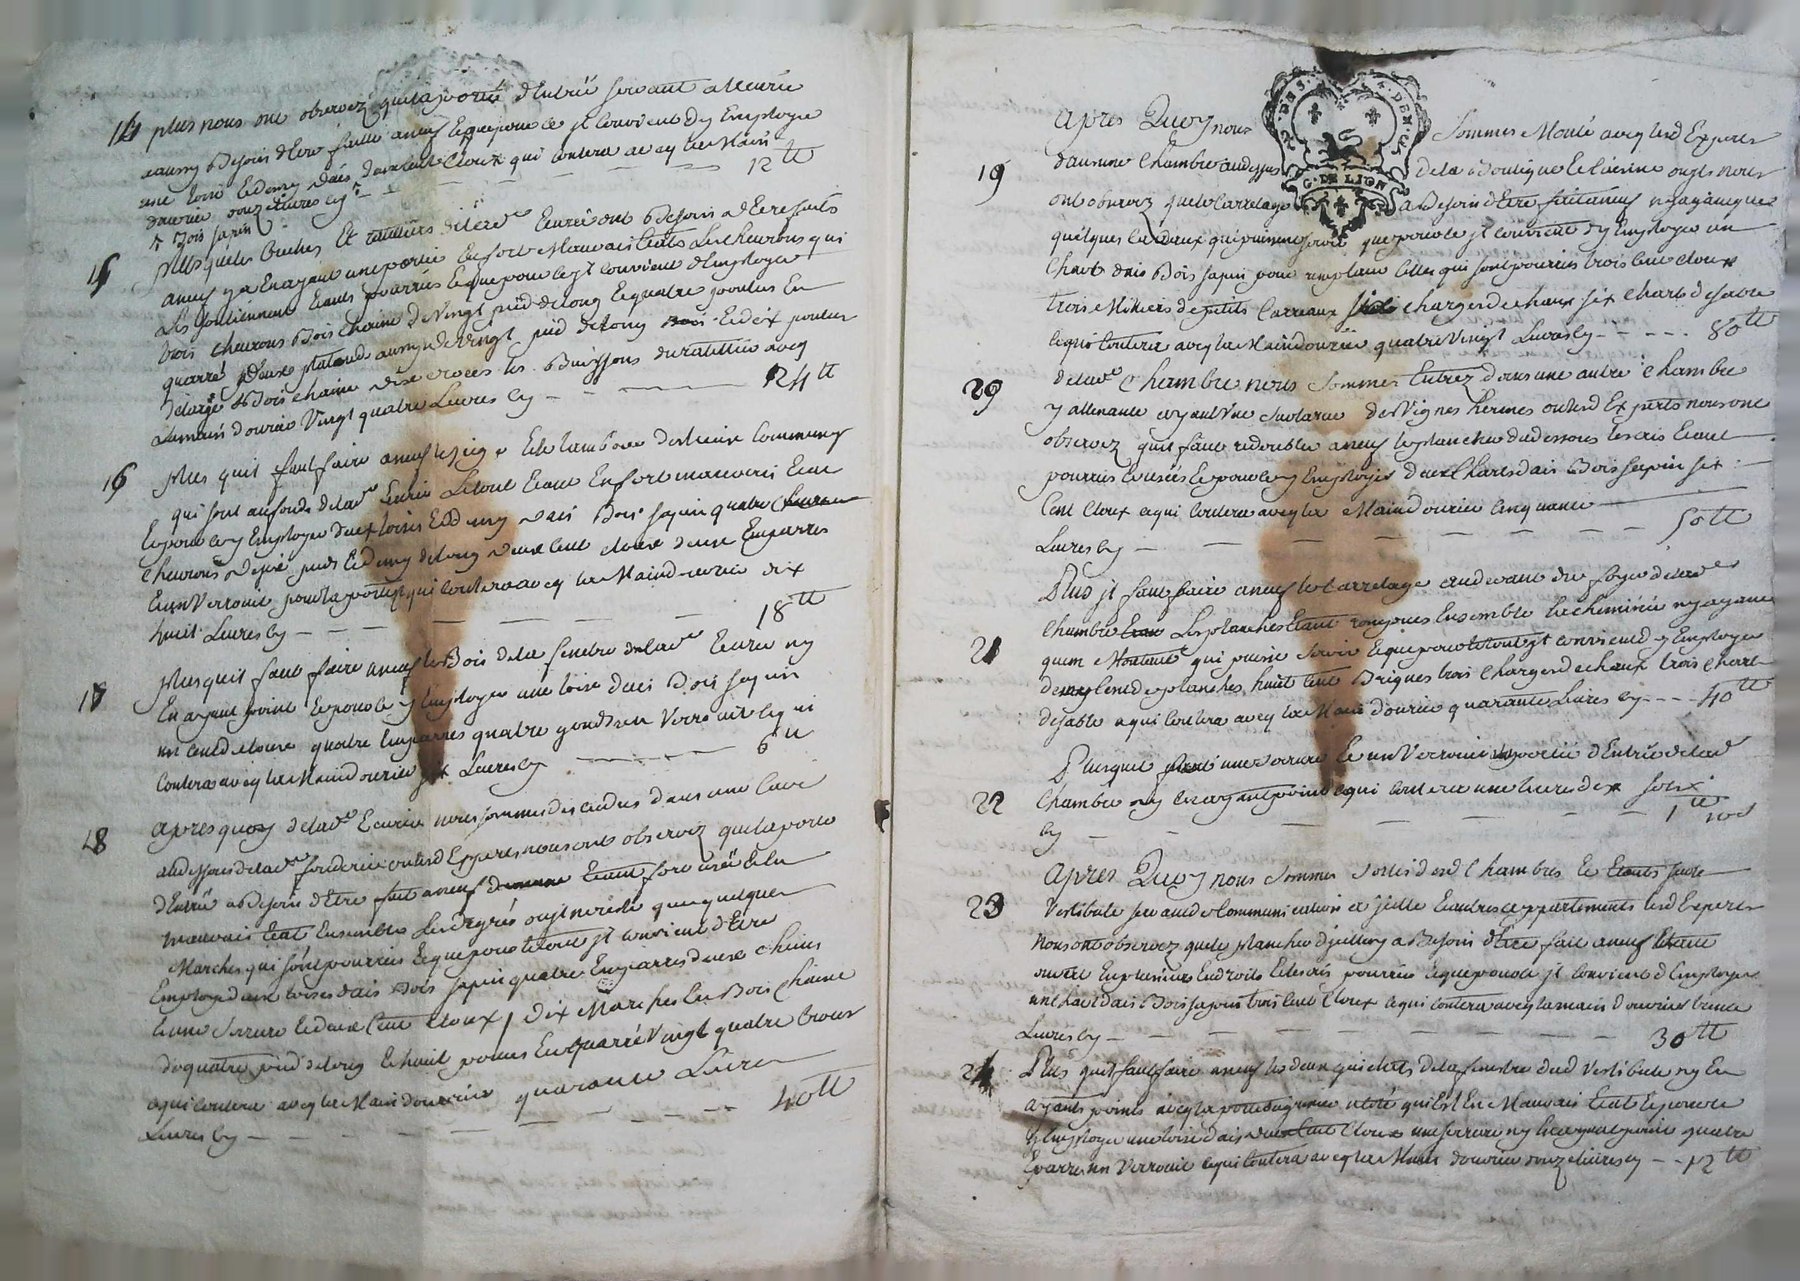 14 plus nous ont observez que la porte d'Entrée servant a l'Ecurie
a aussy Besoin d'Etre faitte a neuf Et que pour ce jl Convient d'y Employer
une toise Et demy d'ais deux Cent Cloux qui Coutera avec la Main
d'ouvrier douze Livres Cy 12 tt
+ Bois sapin
15 plus que les Creches Et rateliers de lad.e Ecurie ont Besoin d'Etre faits
a neuf y en Ayant une partie En fort Mauvais Etats Les cheurons qui
Les soutiennent Etants pourris Et que pour Ce jl Convient d'Employer
trois cheurons Bois Chaine de Vingt pied de long Et quatre pouces En
quarré deux plateaux aussy de Vingt pied de long Et dix pouces
de large Bois chaine avec
La main d'ouvrier Vingt quatre Livres Cy 24 tt
16 plus quil faut faire a neuf le siege Et le tambour des lieux Communs
qui sont au fonds de lad.e Ecurie Le tout Etant En fort mauvais Etat
Et pour Ce y Employer deux toises Et demy d'ais Bois sapin quatre
cheurons de six pieds Et demy de long deux Cent Cloux deux Emparres
Et un Verrouil pour la porte qui Coutera avec la Main d'ouvrier dix
huit Livres Cy 18 tt
17 plus quil faut faire a neuf le Bois de la fenetre de lad.e Ecurie ny
En ayant point Et pour Ce y Employer une toise d'ais Bois sapin
un Cent de Cloux quatre Emparres quatre gonds un Verrouil Ce qui
Coutera avec la Main d'ouvrier six Livres Cy 6 tt
18 apres quoy de lad.e Ecurie nous sommes descendus dans une Cave
au dessous de lad.e ou lesd Experts nous ont observez que la porte
d'Entrée a Besoin d'Etre fait a neuf Etant fort usée Et En
mauvais Etat Ensemble Les degrés ou jl ne reste que quelques
Marches qui sont pourries Et que pour le tout jl Convient d'Etre
Employé deux toises d'ais Bois sapin quatre Emparres
Et une serrure Et deux Cent Cloux, dix Marches En Bois Chaine
de quatre pied de long Et huit pouces En quarré Vingt quatre
Ce qui Coutera avec la Main d'ouvrier quarante Livres
Livres Cy 40 tt
apres Quoy nous Sommes Monté avec lesd Experts
G. DE LION
19 dans une Chambre au dessus de la Boutique Et Cuisine ou jls nous
ont observez que le Carrelage a Besoin d'Etre fait a neuf ny ayant que
quelques Carreaux qui puissent servir que pour Ce jl Convient d'y Employer un
Chart d'ais Bois sapin pour remplacer Celles qui sont pourries trois Cent Cloux
trois Milliers de petits Carreaux six charges de chaux six Charts de sable
Ce qui Coutera avec la Main d'ouvrier quatre Vingt Livres Cy 80 tt
20 de lad.e Chambre nous Sommes Entrez dans une autre Chambre
y attenante ayant Vüe sur la rue des Vignes ou lesd Experts nous ont
observez quil faut redoubler a neuf le plancher du dessous les ais Etant
pourries Et usées Et pour Ce y Employer deux Charts d'ais Bois sapin six
Cent Cloux Ce qui Coutera avec la Main d'ouvrier Cinquante
Livres Cy 50 tt
21 Plus jl faut faire a neuf le Carrelage au devant du foyer de lad.e
Chambre Les planches Etant rongées Ensemble la cheminée ny ayant
qu'un Montant qui puisse servir Et que pour le tout jl convient d'y Employer
de planches, huit Cent Briques trois Charges de chaux trois Chart
de sable Ce qui Coutera avec la Main d'ouvrier quarante Livres Cy 40 tt
22 Plus quil faut une serrure Et un Verrouil a la porte d'Entrée de lad.e
Chambre ny En ayant point Ce qui Coutera une livre dix sols
Cy 1 tt 10 s
23 apres Quoy nous Sommes sortis desd Chambres Et Etants sur le
Vestibule servant de Communication a jcelle Et autres appartements lesd Experts
nous ont observez que le plancher d'jcelluy a Besoin d'Etre fait a neuf Etant
ouvert En plusieurs Endroits Et les ais pourries Et que pour Ce jl Convient d'Employer
un chart d'ais Bois sapin trois Cent Cloux Ce qui Coutera avec la main d'ouvrier trente
Livres Cy 30 tt
24 Plus quil faut faire a neuf les deux guichets de la fenetre dud Vestibule ny En
ayants points avec la porte a coté qui Est En Mauvais Etat Et pour Ce
y Employer une toise d'ais deux Cent Cloux une serrure ny En ayant point quatre
Eparres un Verrouil Ce qui Coutera avec la Main d'ouvrier douze Livres Cy 12 tt